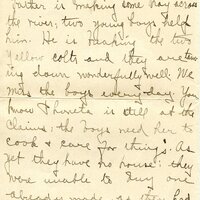 father is making some hay across
the river; two young boys help
him. He is heading the two
yellow colts and they are tun
ing down wonderfully well. We
miss the boys every day. You
know Phoneta is still at the
Claims; the boys need her to
cook & care for things. As
yet they have no house: they
were unable to buy one
already made, as they had